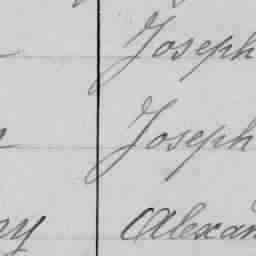 Joseph
Joseph
ey Alexan